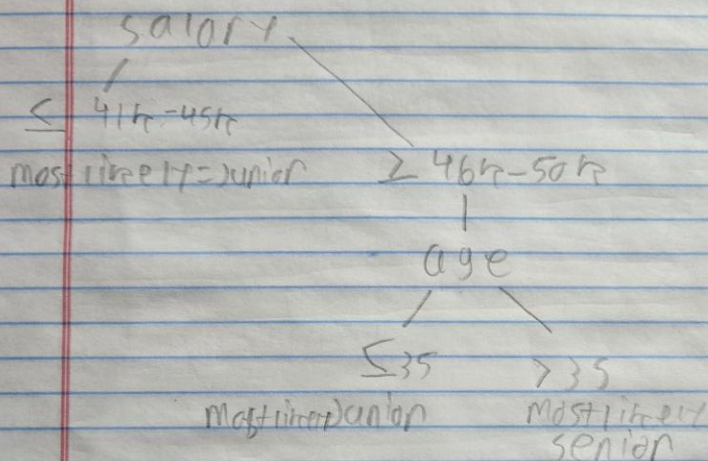 salary
≤ 41k-45k
most likely=junior
≥ 46k-50k
age
≤35
>35
most likely junior
most likely
senior